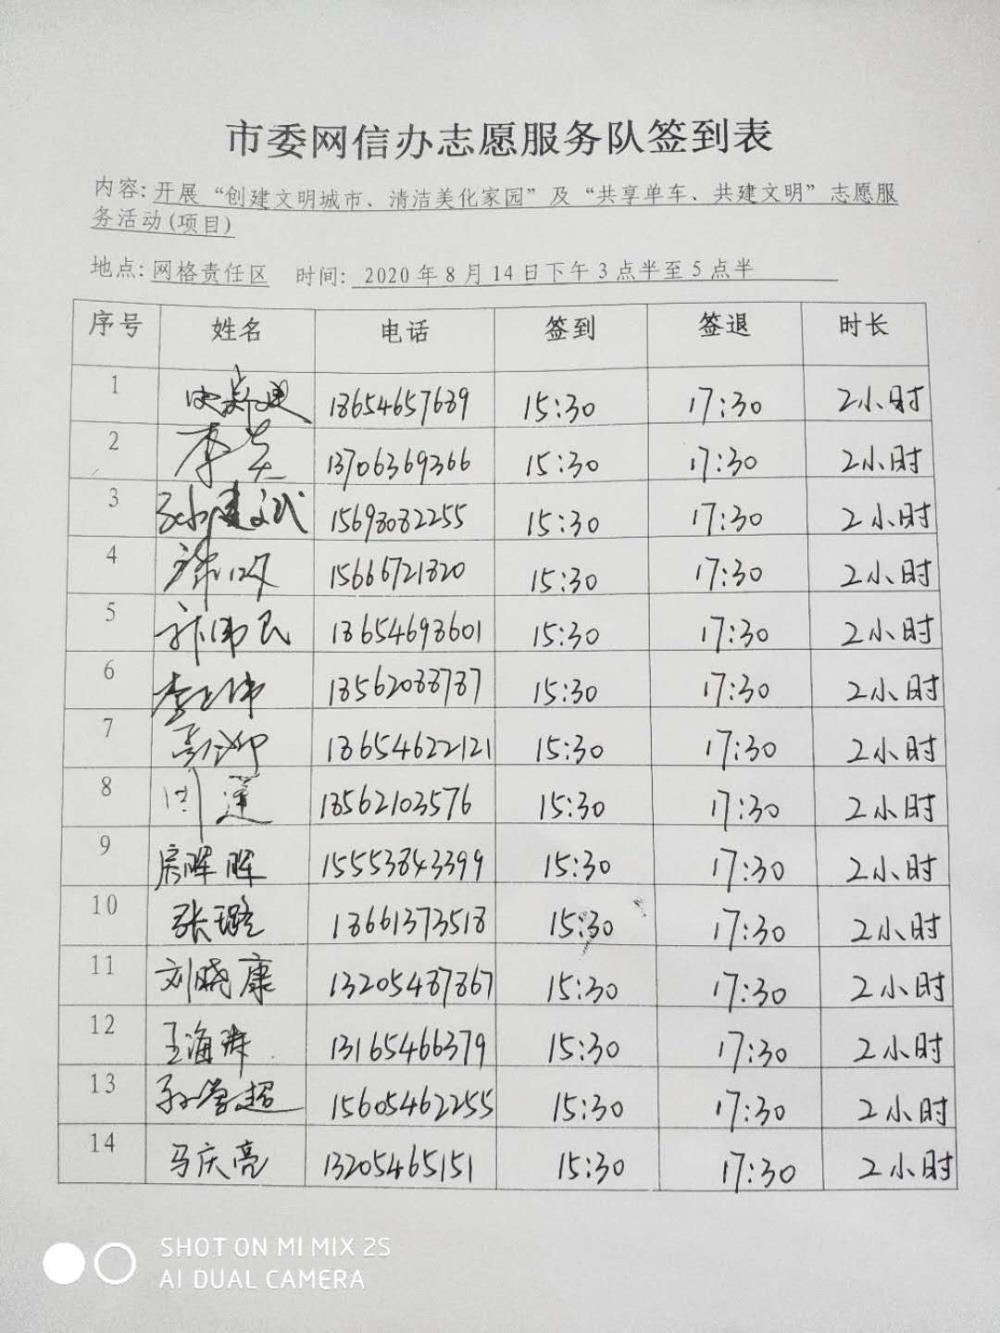 市委网信办志愿服务队签到表
内容:开展“创建文明城市、清洁美化家园”及“共享单车、共建文明”志愿服
务活动(项目)
地点:网格责任区 时间: 2020年8月14日下午3点半至5点半
序号 姓名 电话 签到 签退 时长
1 18654657689 15:30 17:30 2小时
2 13706369366 15:30 17:30 2小时
3 孙建斌 15698082255 15:30 17:30 2小时
4 15666721820 15:30 17:30 2小时
5 18654698601 15:30 17:30 2小时
6 18562088787 15:30 17:30 2小时
7 18654622121 15:30 17:30 2小时
8 周莲 18562103576 15:30 17:30 2小时
9 15553843399 15:30 17:30 2小时
10 张璐 18661373518 15:30 17:30 2小时
11 刘晓康 13205487867 15:30 17:30 2小时
12 王海涛 13165466379 15:30 17:30 2小时
13 15605462255 15:30 17:30 2小时
14 马庆亮 13205465151 15:30 17:30 2小时
SHOT ON MI MIX 2S
AI DUAL CAMERA